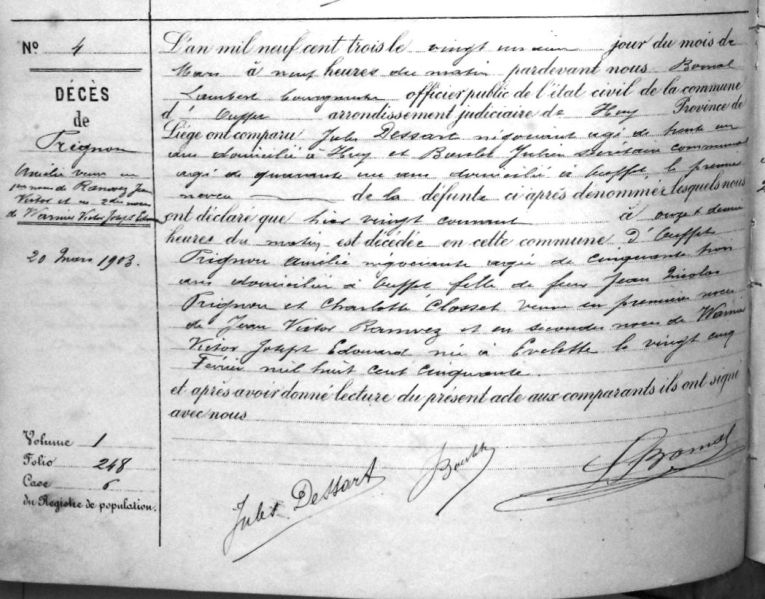 No 4
DÉCÈS
de
Trignon
Amélie veuve en
1res noces de Ramvez Jean
Victor et en 2des noces
de Warnier Victor Joseph Edouard
20 Mars 1903.
Volume 1
Folio 248
Case 6
du Registre de population.
L'an mil neuf cent trois le vingt un jour du mois de
Mars à neuf heures du matin pardevant nous Bomal
Lambert officier public de l'état civil de la commune
d' Ouffet arrondissement judiciaire de Huy Province de
Liége ont comparu Jules Dessart négociant agé de trente un
ans domicilié à Huy et Julien Secrétaire communal
agé de quarante un ans domicilié à Ouffet, le premier
neveu de la défunte ci après dénommée, lesquels nous
ont déclaré que hier vingt courant à onze et demie
heures du matin est décédée en cette commune d'Ouffet
Trignon Amélie négociante agée de cinquante trois
ans domiciliée à Ouffet fille de feus Jean Nicolas
Trignon et Charlotte Closset veuve en premières noces
de Jean Victor Ramvez et en secondes noces de Warnier
Victor Joseph Edouard née à Evelette le vingt cinq
Février mil huit cent cinquante.
et après avoir donné lecture du présent acte aux comparants ils ont signé
avec nous
Jules Dessart
Bomal